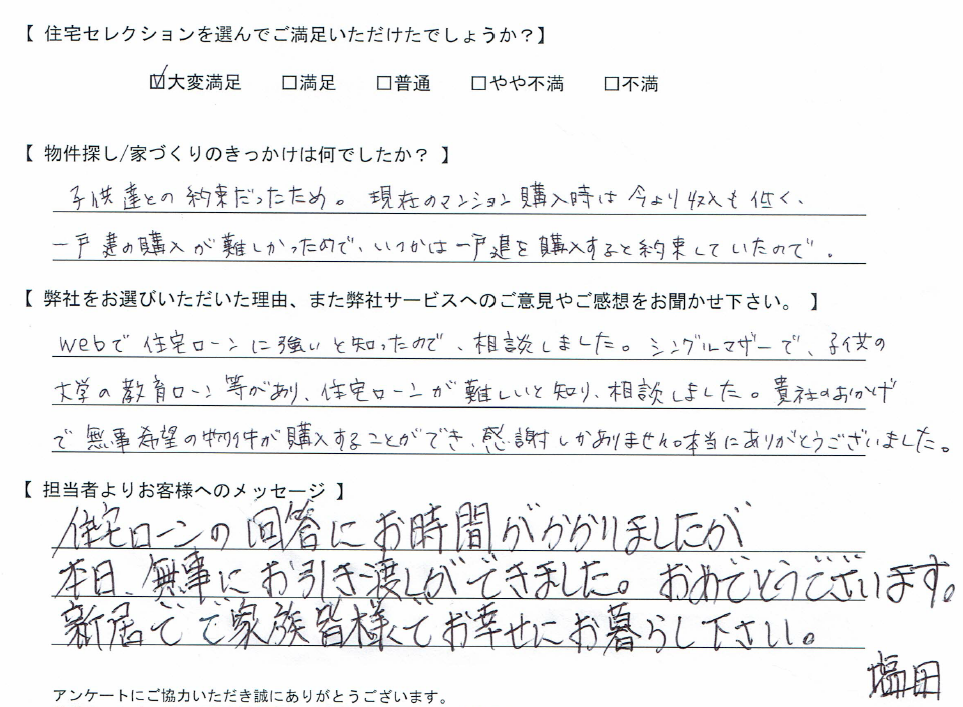 【 住宅セレクションを選んでご満足いただけたでしょうか?】
☑大変満足 □満足 □普通 □やや不満 □不満
【 物件探し/家づくりのきっかけは何でしたか? 】
子供達との約束だったため。現在のマンション購入時は今より収入も低く、
一戸建の購入が難しかったので、いつかは一戸建を購入すると約束していたので。
【 弊社をお選びいただいた理由、また弊社サービスへのご意見やご感想をお聞かせ下さい。 】
webで住宅ローンに強いと知ったので、相談しました。シングルマザーで、子供の
大学の教育ローン等があり、住宅ローンが難しいと知り、相談しました。貴社のおかげ
で無事希望の物件が購入することができ、感謝しかありません。本当にありがとうございました。
【 担当者よりお客様へのメッセージ 】
住宅ローンの回答にお時間がかかりましたが
本日、無事にお引き渡しができました。おめでとうございます。
新居でご家族皆様でお幸せにお暮らし下さい。
塩田
アンケートにご協力いただき誠にありがとうございます。